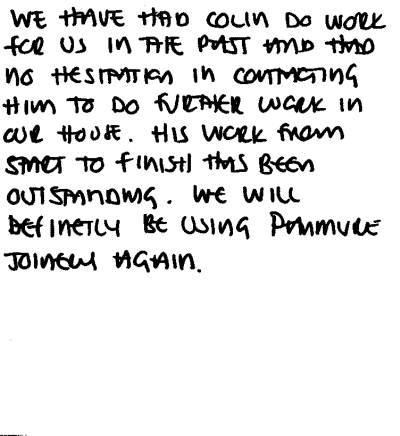 WE HAVE HAD COLIN DO WORK
FOR US IN THE PAST AND HAD
NO HESITATION IN CONTACTING
HIM TO DO FURTHER WORK IN
OUR HOUSE. HIS WORK FROM
START TO FINISH HAS BEEN
OUTSTANDING. WE WILL
DEFINETLY BE USING PANMURE
JOINERY AGAIN.